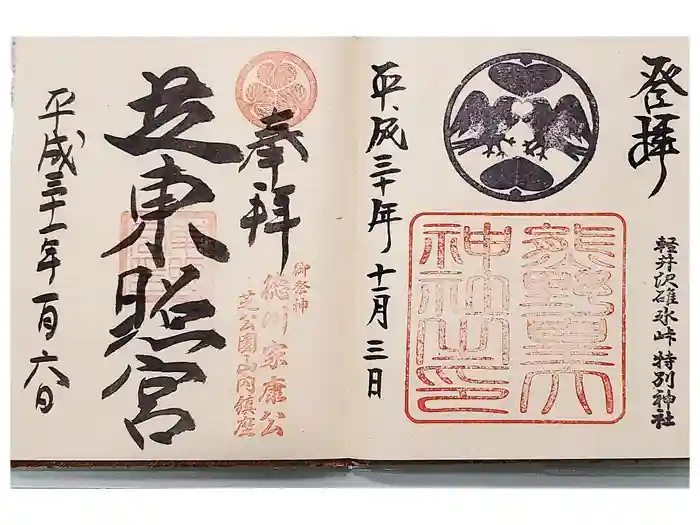 登拝
軽井沢碓氷峠 特別神社
熊野皇大
神社之印
平成三十年 十一月 三日
奉拝
御祭神
徳川家康公
芝公園山内鎮座
芝東照宮
平成三十一年 一月 六日